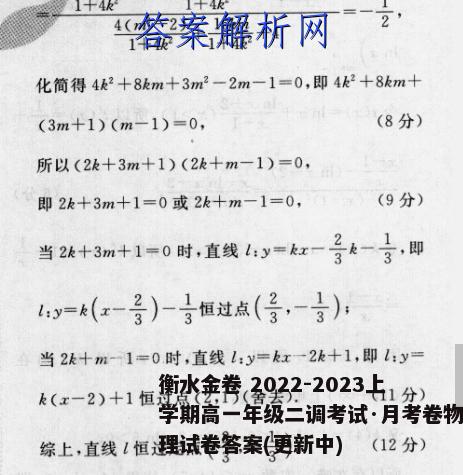 1+4k² 1+4k² =-1/2,
答案解析网
化简得 4k²+8km+3m²-2m-1=0,即 4k²+8km+
(3m+1)(m-1)=0, (8分)
所以(2k+3m+1)(2k+m-1)=0,
即 2k+3m+1=0 或 2k+m-1=0, (9分)
当 2k+3m+1=0 时,直线 l:y=kx-2/3k-1/3,即
l:y=k(x-2/3)-1/3恒过点(2/3,-1/3);
当 2k+m-1=0 时,直线 l:y=kx-2k+1,即 l:y=
k(x-2)+1 恒过点(2,1)(舍去). (11分)
衡水金卷 2022-2023上
学期高一年级二调考试·月考卷物
理试卷答案(更新中)
综上,直线 l 恒过 (12分)